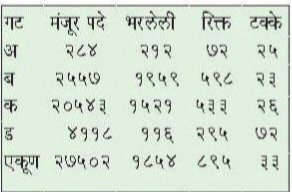 गट मंजूर पदे भरलेली रिक्त टक्के
अ २८४ २१२ ७२ २५
ब २५५७ १९५९ ५९८ २३
क २०५४३ १५२१ ५३३ २६
ड ४११८ ११६ २९५ ७२
एकूण २७५०२ १८५४ ८९५ ३३